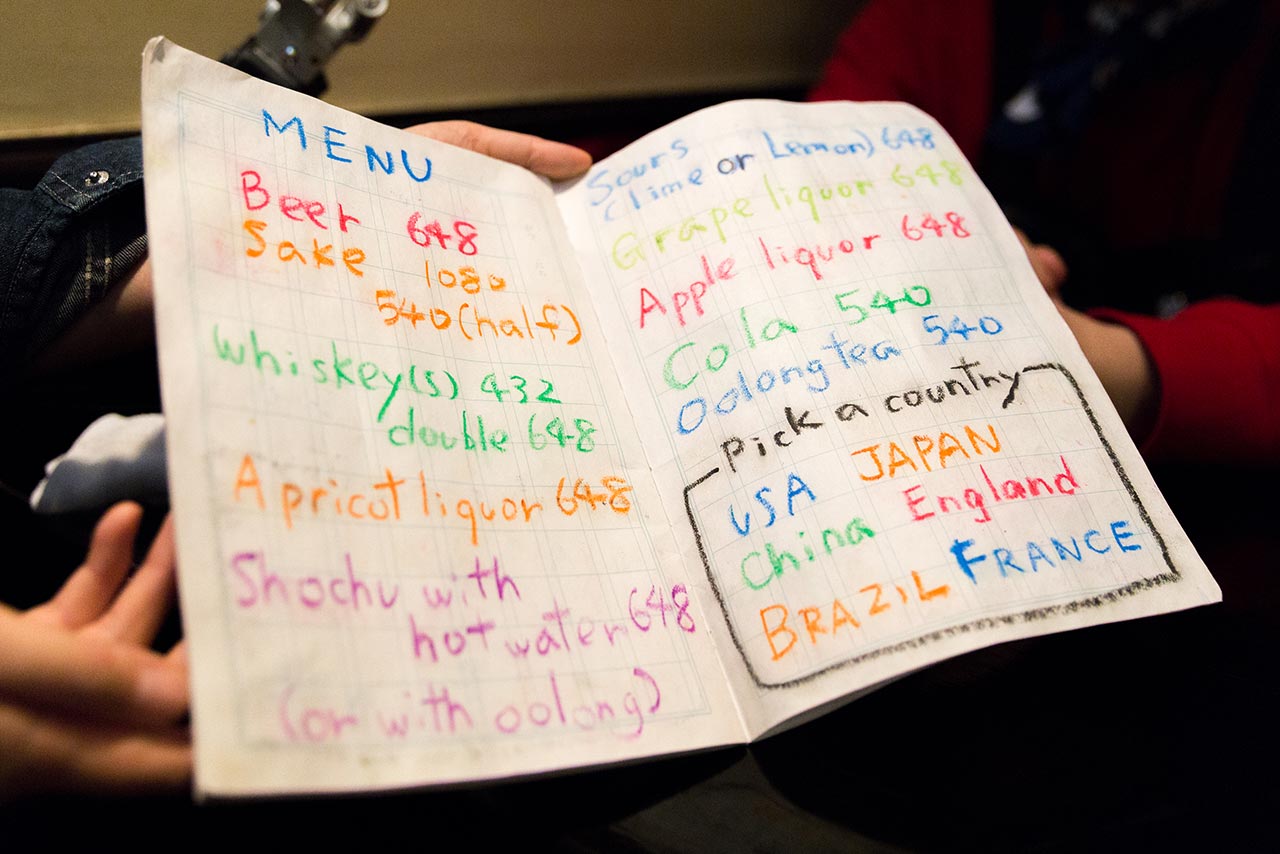 MENU
Beer 648
Sake 1080
540(half)
Whiskey(s) 432
double 648
Apricot liquor 648
Shochu with
hot water 648
(or with oolong)
Sours
(lime or Lemon) 648
Grape liquor 648
Apple liquor 648
Cola 540
Oolong tea 540
Pick a country
USA JAPAN
China England
BRAZIL FRANCE